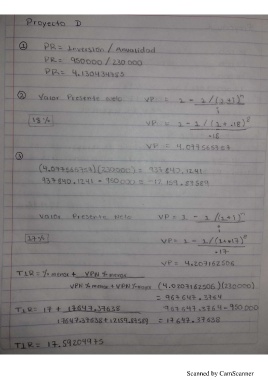 Proyecto D
① PR = Inversion / Anualidad
PR = 950000 / 230000
PR = 4.130434783
② Valor Presente neto VP =
18% VP = 1 - 1/(1+.18)
.18
VP = 4.077565757
③
(230000) = 937,840.1241
937,840.1241 - 950000 = -12,159.87589
Valor Presente neto VP = 1 - 1/(1+i)
17% VP = 1 - 1/(1+.17)
.17
VP = 4.207162506
TIR = % menor + VPN % menor
VPN % menor + VPN % mayor (4.207162506)(230000)
= 967647.3764
TIR = 17 + 17647.37638 967647.3764 - 950000
17647.37638 + 12159.87589 = 17647.37638
TIR = 17.59204975
Scanned by CamScanner